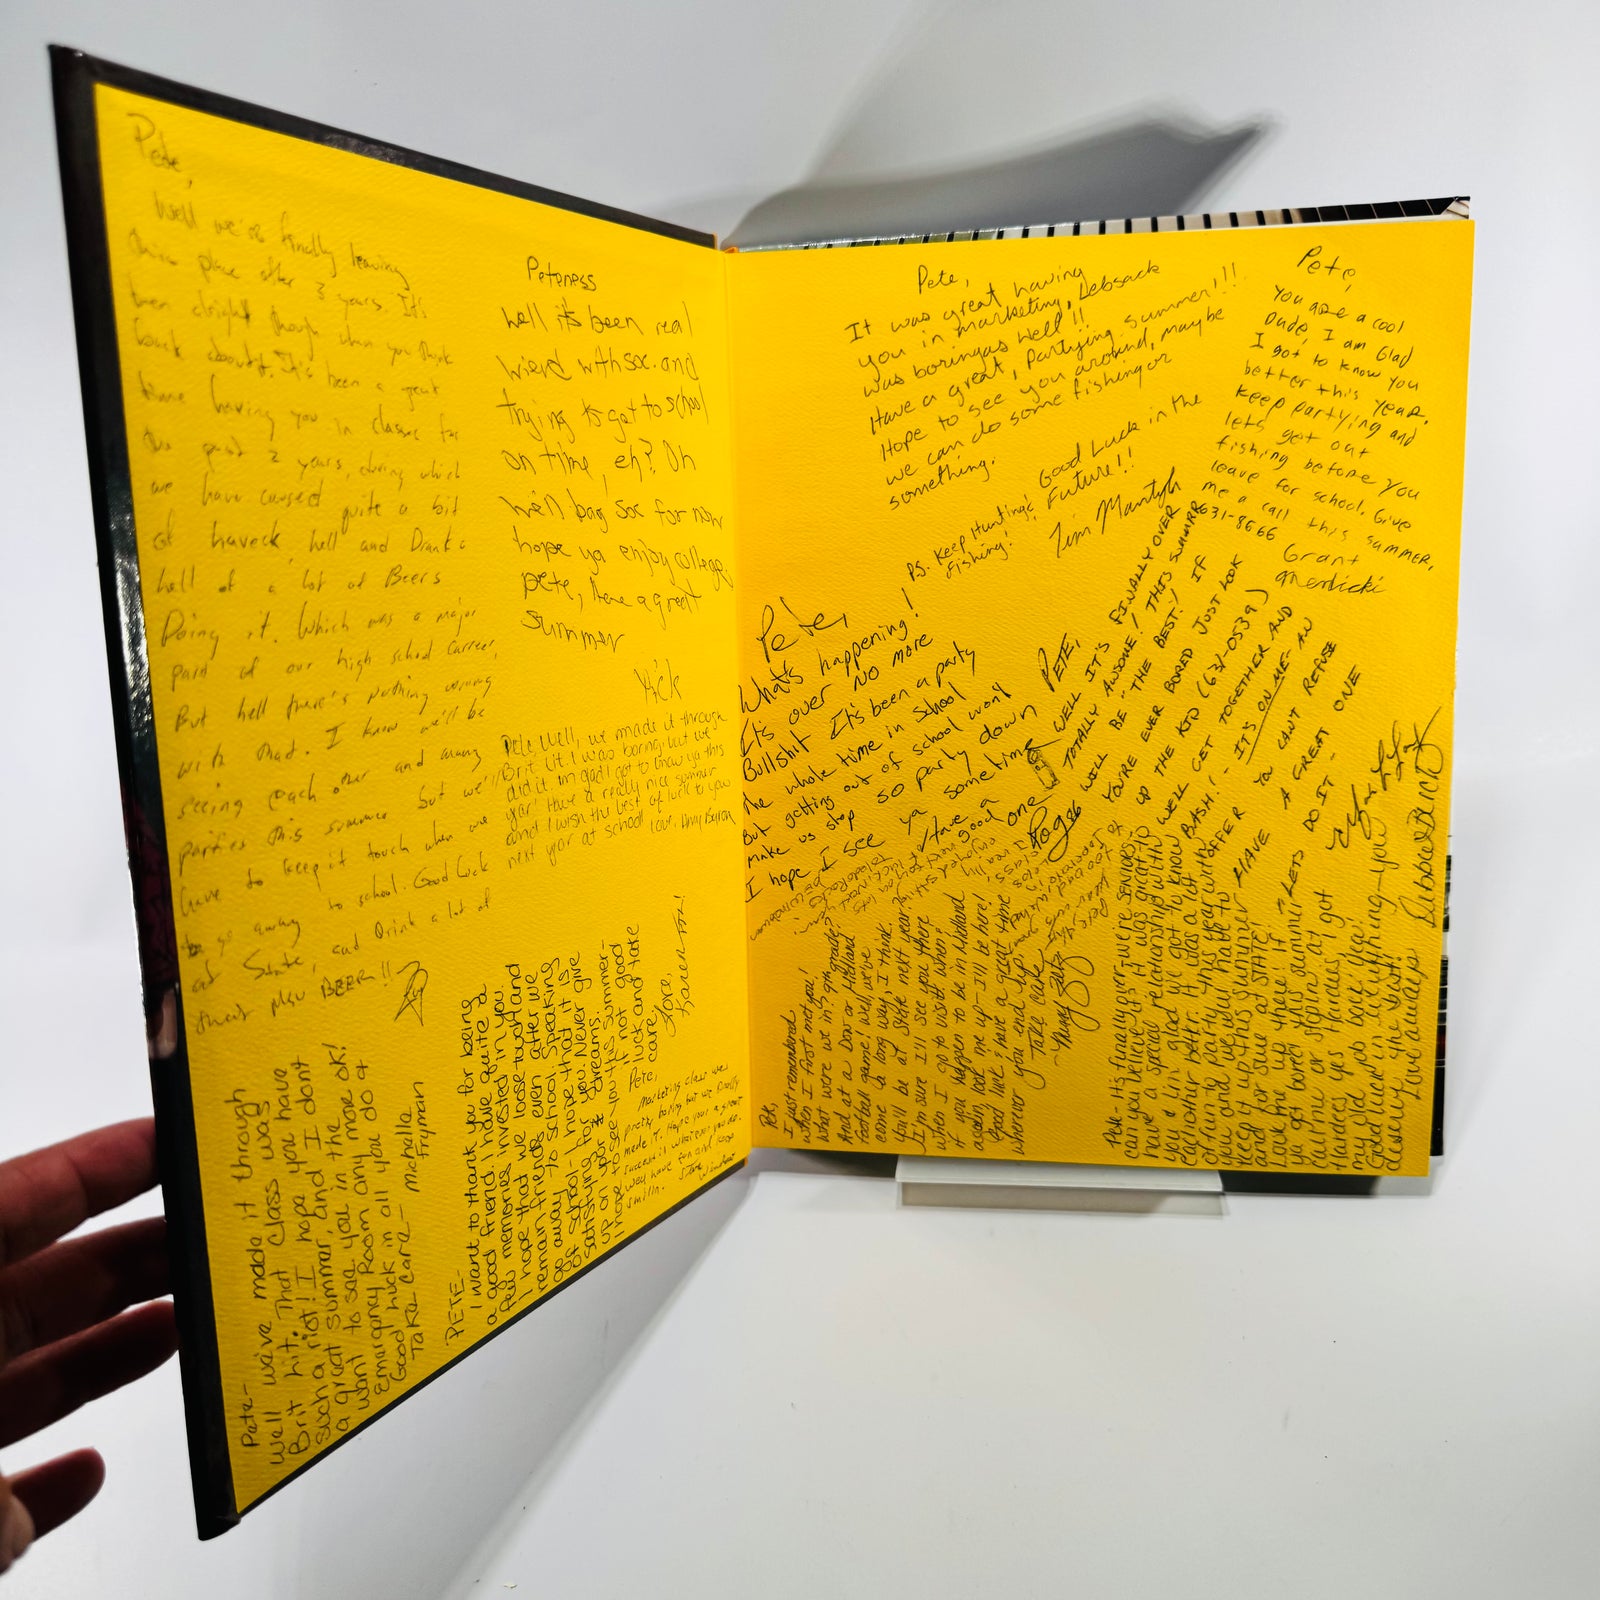 Pete,
Well we're finally leaving
this place after 3 years. It's
been alright though when you think
back about it. It's been a great
time having you in classes for
the past 2 years, during which
we have caused quite a bit
of haveck, hell and Drank a
hell of a lot of Beers
Doing it. Which was a major
part of our high school carreer,
But hell there's nothing wrong
with that. I know we'll be
seeing each other and many
parties this summer but we'll
have to keep it touch when we
go away to school. Good luck
at State, and Drink a lot of
that BEER!!
Peteness
well it's been real
wierd with soc. and
trying to get to school
on time, eh? Oh
well bag soc for now
hope ya enjoy college
pete, have a great
summer
Pete, Well, we made it through
Brit Lit. I was boring, but we
did it. Im glad I got to know ya this
year! Have a really nice summer
and I wish the best of luck to you
next year at school
Love, Amy
Pete-
Well we've made it through
Brit Lit. That class was
such a riot! I hope you have
a great summer, and I dont
want to see you in the
Emergancy Room any more ok!
Good luck in all you do &
Take Care- Michelle
Fryman
PETE-
I want to thank you for being
a good friend. I have quite a
few memories invested in you.
I hope that we loose touch and
remain friends even after we
go away to school. Speaking
of school- I hope that it is
satisfying for you. Never give
up on your dreams.
I hope to see you this summer-
if not good
luck and take
care,
Love,
Karen
Pete,
Marketing class was
pretty boring but we finally
made it. Hope your a great
success in whatever you do.
well have fun and keep
smilin. Steve
Pete,
It was great having
you in marketing, Lebsack
was boring as hell!!
Have a great, partying summer!!!
Hope to see you around, maybe
we can do some fishing or
something.
Good Luck in the
Future!!
PS. Keep Hunting &
fishing!
Tim
Pete,
You are a cool
Dude, I am Glad
I got to know you
better this year.
Keep partying and
lets get out
fishing before you
leave for school. Give
me a call this summer,
631-8666 Grant
Pete,
What's happening!
It's over No more
Bullshit It's been a party
the whole time in School
But getting out of school won't
make us stop so party down
I hope I see ya sometime
Have
one
PETE,
WELL IT'S FINALLY OVER
TOTALLY AWSOME! THIS SUMMR
WILL BE "THE BEST!" IF
YOU'RE EVER BORED JUST LOOK
UP THE KID (631-0539)
WELL GET TOGETHER AND
BASH! - IT'S ON ME- AN
OFFER YOU CAN'T REFUSE
HAVE A GREAT ONE
"LETS DO IT"
Pete,
I just remembered
when I first met you!
What were we in? 9th grade?
And at a Dow or Midland
football game! Well, we've
come a long way, I think.
You'll be at State next year &
I'm sure I'll see you there
when I go to visit when?
if you happen to be in Midland
again, look me up- I'll be here!
Good luck & have a great time
wherever you end up.
Take Care-
Pete- It's finally over- we're SENIORS,
can you believe it? It was great to
have a special relationship with
you & I'm glad we got to know
eachother better. It was a lot
of fun to party this year with
you and we will have to
keep it up this summer
and for sure at STATE!
Look me up there! If
ya get bored this summer
call me or stop in at
Hardees yes Hardees, I got
my old job back, yea!
Good luck in everything-you
deserve the best!
Love always